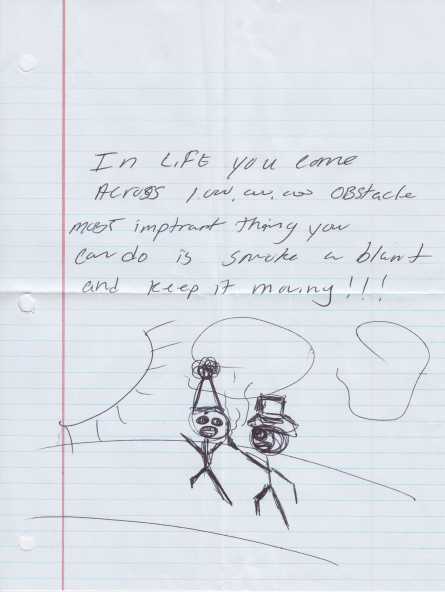 In LiFE you come
Across 1,000,000,000 OBstacle
most imptrant thing you
can do is smoke a blunt
and keep it moving!!!